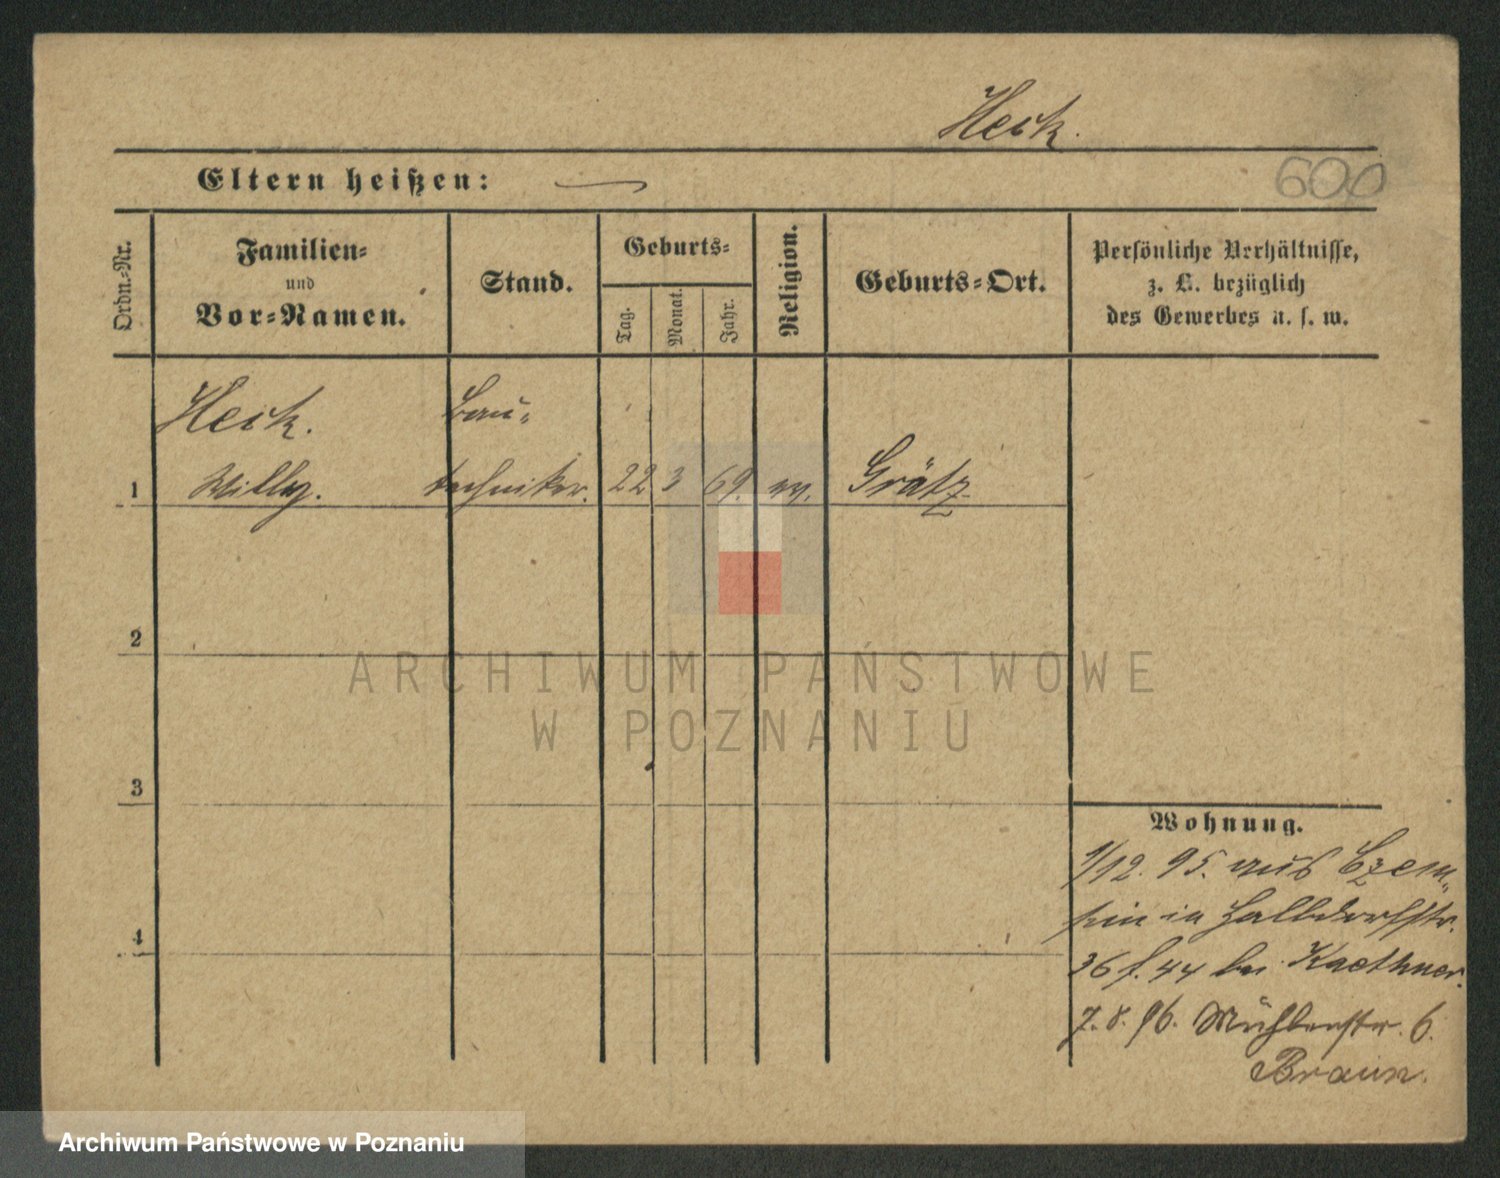 Heck.
Eltern heißen: —
600
Ordn.-Nr.
Familien-
und
Vor-Namen.
Stand.
Geburts-
Tag.
Monat.
Jahr.
Religion.
Geburts-Ort.
Persönliche Verhältnisse,
z. B. bezüglich
des Gewerbes u. s. w.
Heck. Bau-
1 Willy. techniker. 22 3 69. ev. Grätz
2
3
4
ARCHIWUM PAŃSTWOWE
W POZNANIU
Wohnung.
1/12. 95. aus Czem-
pin in Halbdorfstr.
36 f. 44 bei Kaethner.
7. 8. 96. Mühlenstr. 6.
Braun.
Archiwum Państwowe w Poznaniu